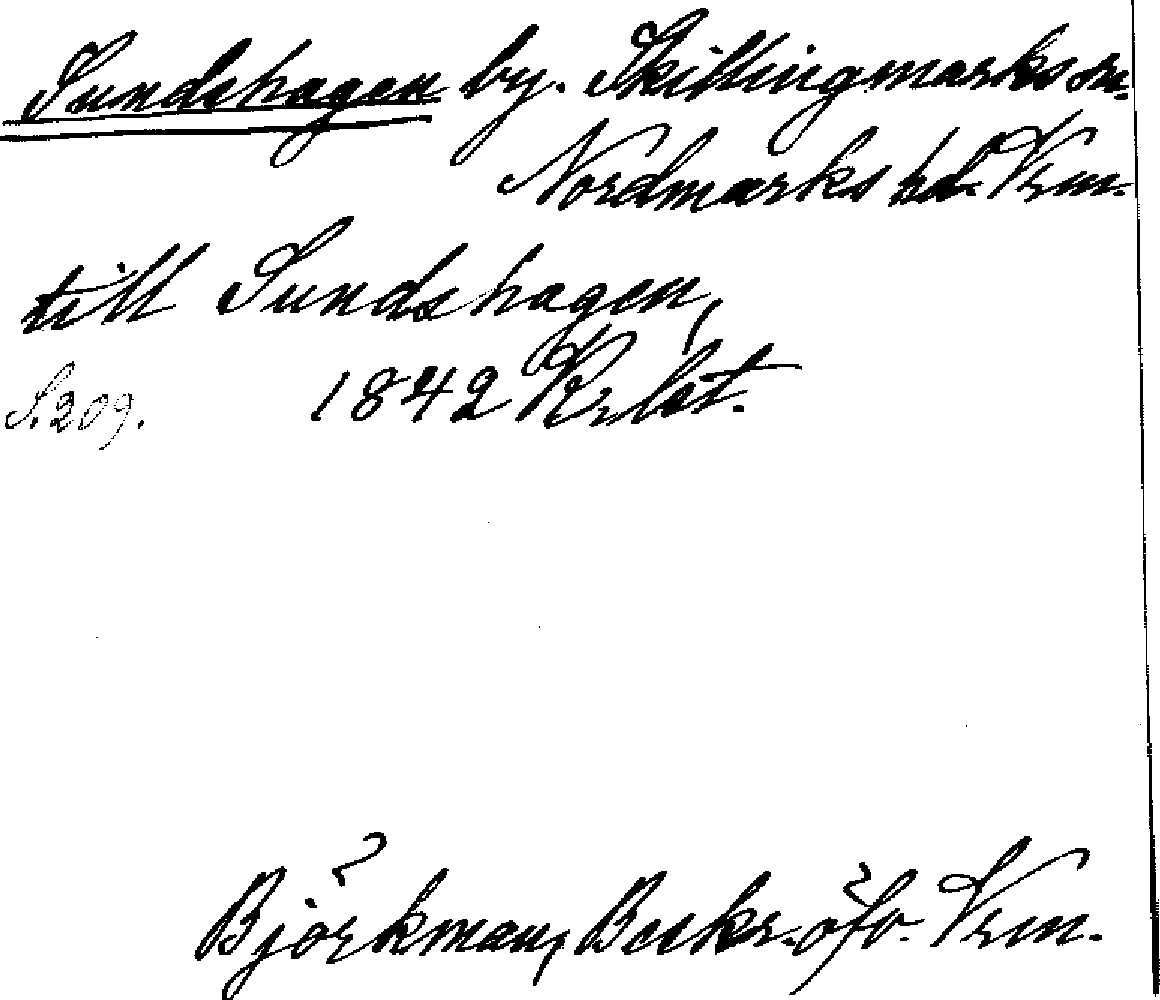 Sundshagen by. Skillingmarks sn.
Nordmarks hd. Vrm.
till Sundshagen,
S. 209. 1842 Kr. löt.
Björkman, Beskr. öfv. Vrm.